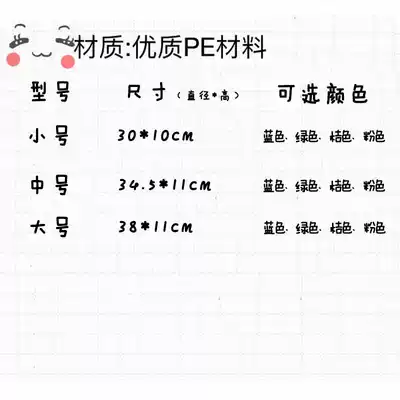 材质:优质PE材料
型号 尺寸(直径*高) 可选颜色
小号 30*10cm 蓝色、绿色、桔色、粉色
中号 34.5*11cm 蓝色、绿色、桔色、粉色
大号 38*11cm 蓝色、绿色、桔色、粉色